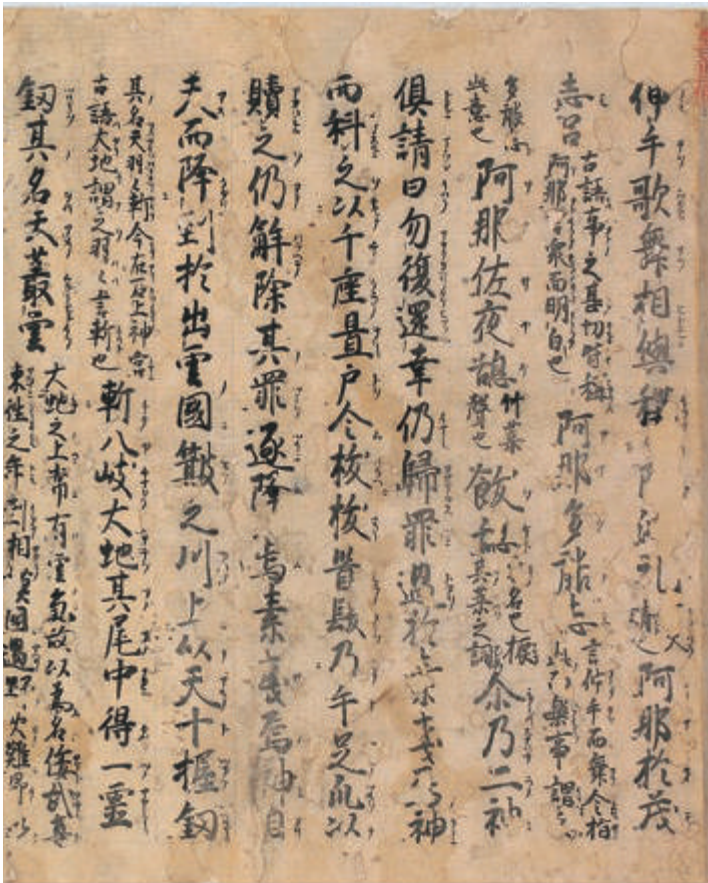 伸手歌舞相與稱 阿那於茂
志呂 古語事之甚切皆稱
阿那 衆面明白也 阿那多能志 言伸手而舞今指
樂事謂之
多能志
此意也 阿那佐夜憩 竹葉
聲也 飫憩 木名也振
其葉之調 尒乃二神
俱請曰勿復還幸仍歸罪過於 神
而科之以千座置戸令拔 首髮及手足爪以
贖之仍解除其罪逐降焉素戔嗚神自
天而降到於出雲國簸之川上以天十握釼
其名天羽々斬今在石上神宮
古語大蛇謂之羽々言斬也 斬八岐大蛇其尾中得一靈
釼其名天叢雲 大蛇之上常有雲氣故以爲名倭武尊
東征之年到相 國遇野火難即以